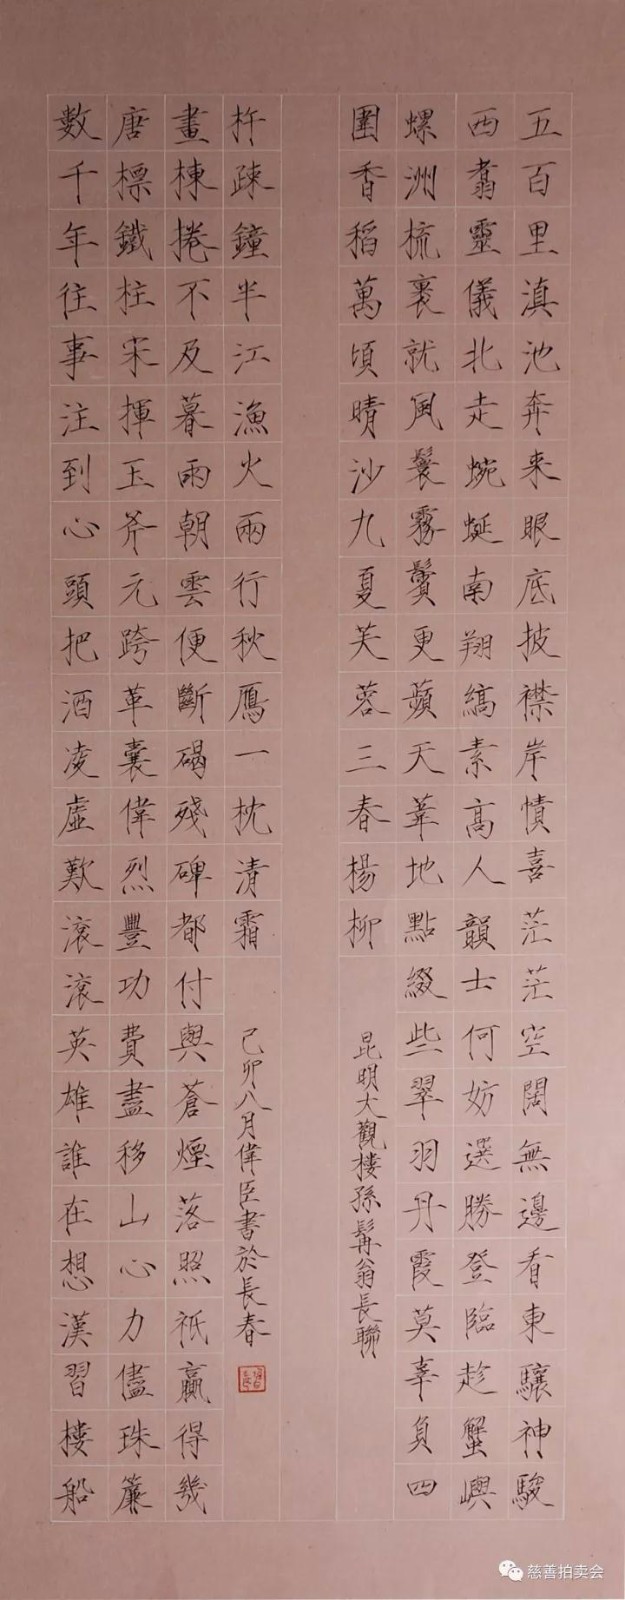 五百里滇池奔来眼底披襟岸幘喜茫茫空闊無邊看東驤神駿
西翥靈儀北走蜿蜒南翔縞素高人韻士何妨選勝登臨趁蟹嶼
螺洲梳裹就風鬟霧鬢更蘋天葦地點綴些翠羽丹霞莫辜負四
圍香稻萬頃晴沙九夏芙蓉三春楊柳
昆明大觀樓孫髯翁長聯
數千年往事注到心頭把酒凌虛歎滾滾英雄誰在想漢習樓船
唐標鐵柱宋揮玉斧元跨革囊偉烈豐功費盡移山心力儘珠簾
畫棟捲不及暮雨朝雲便斷碣殘碑都付與蒼煙落照祇贏得幾
杵疎鐘半江漁火兩行秋鴈一枕清霜
己卯八月偉臣書於長春
慈善拍卖会